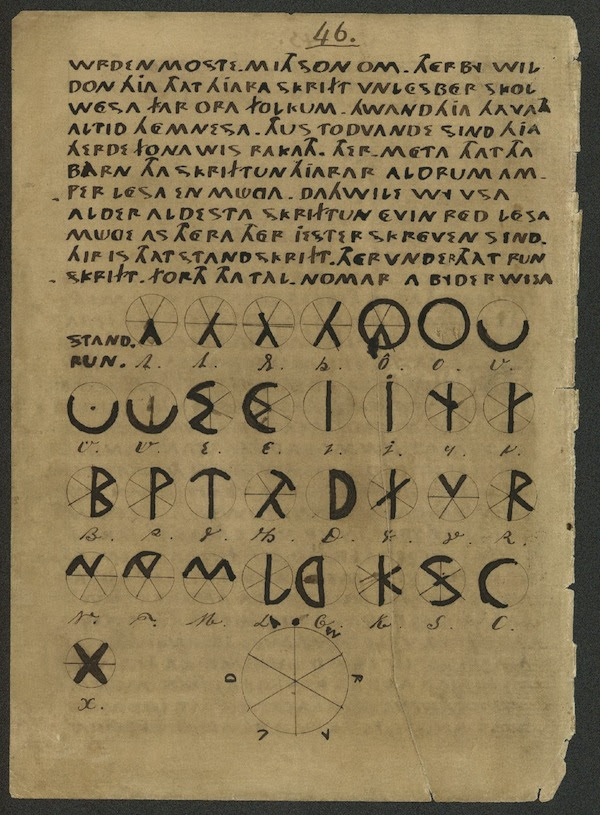 46.
WRDEN MOSTE. MITH SON OM. THER BY WIL
DON HIA THAT HIARA SKRIFT VNLESBER SKOL
WESA FAR ORA FOLKUM. HWAND HIA HAVATH
ALTID HEMNESA. THUS TODVANDE SIND HIA
HERDE FONA WIS RAKATH. THER META THAT THA
BARN THA SKRIFTUN HIARAR ALDRUM AM-
PER LESA EN MUGA. DAHWILE WY VSA
ALDER ALDESTA SKRIFTUN EVIN RED LESA
MUGE AS THERA THER JESTER SKREVEN SIND.
HIR IS THAT STAND SKRIFT. THER VNDER THAT RUN
SKRIFT. FORTH THA TAL-NOMAR A BYDER WISA
STAND.
RUN. A. A. A. A. O. O. U.
U. U. E. E. I. J. Y. N.
B. P. T. TH. D. F. V. R.
N. NG. M. L. G. K. S. C.
X.